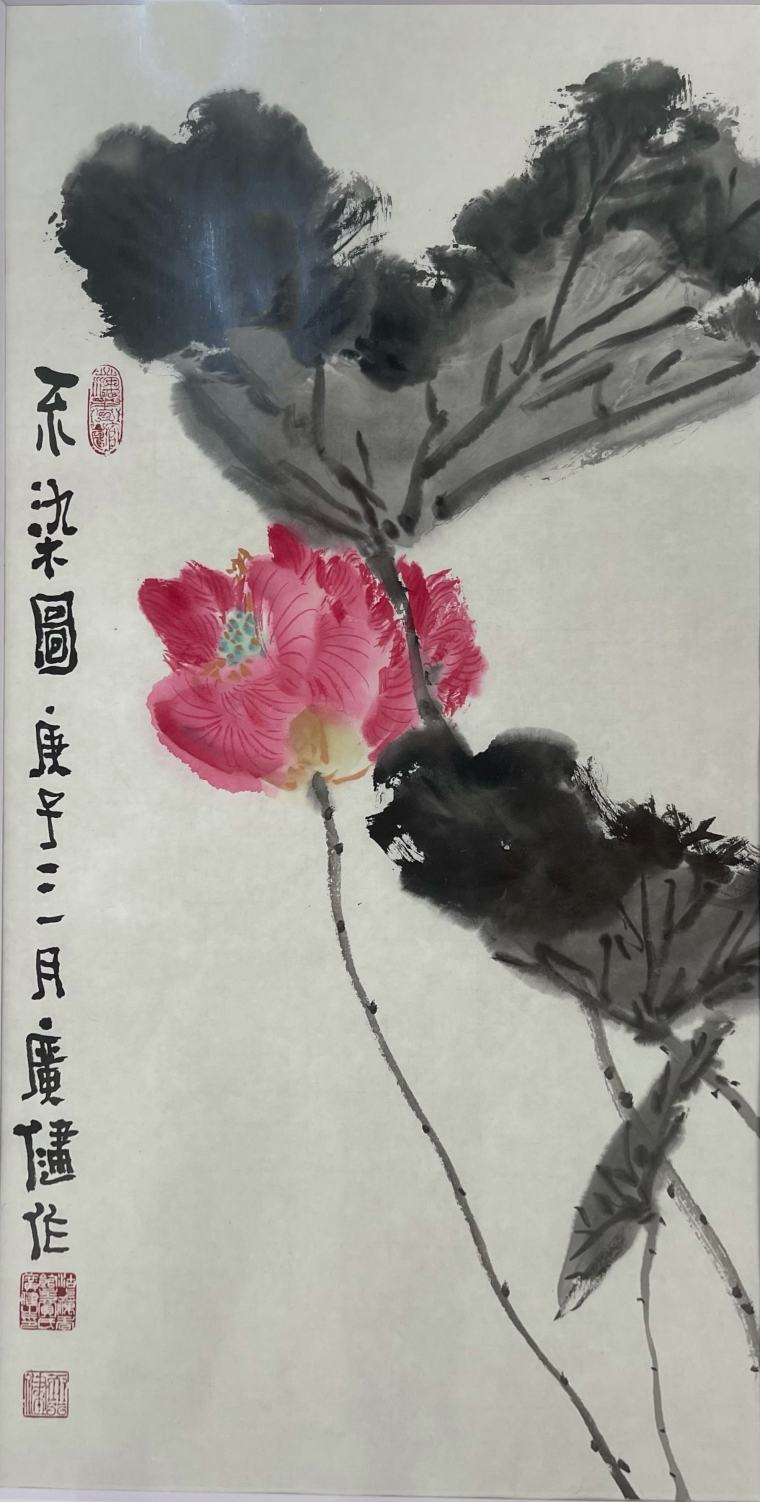 不染圖 庚子三月 廣健作